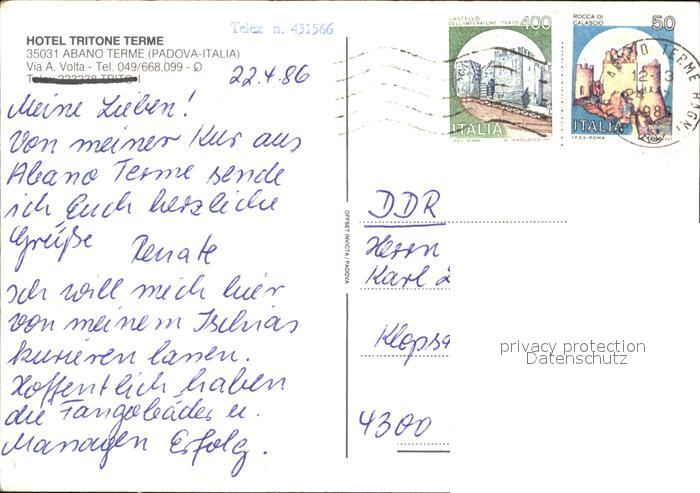 Telex n. 431566
HOTEL TRITONE TERME
35031 ABANO TERME (PADOVA-ITALIA)
Via A. Volta - Tel. 049/668.099 -
22.4.86
Meine Lieben!
Von meiner Kur aus
Abano Terme sende
ich Euch herzliche
Grüße Renate
Ich will mich hier
von meinem Ischias
kurieren lassen.
Hoffentlich haben
die Fangobäder u.
Massagen Erfolg.
OFFSET INVICTA/PADOVA
CASTELLO
DELL'IMPERATORE PRATO 400
ITALIA
I.P.Z.S. ROMA
ROCCA DI
CALASCIO 50
ITALIA
I.P.Z.S.-ROMA
DDR
Herrn
Karl
4300
privacy protection
Datenschutz